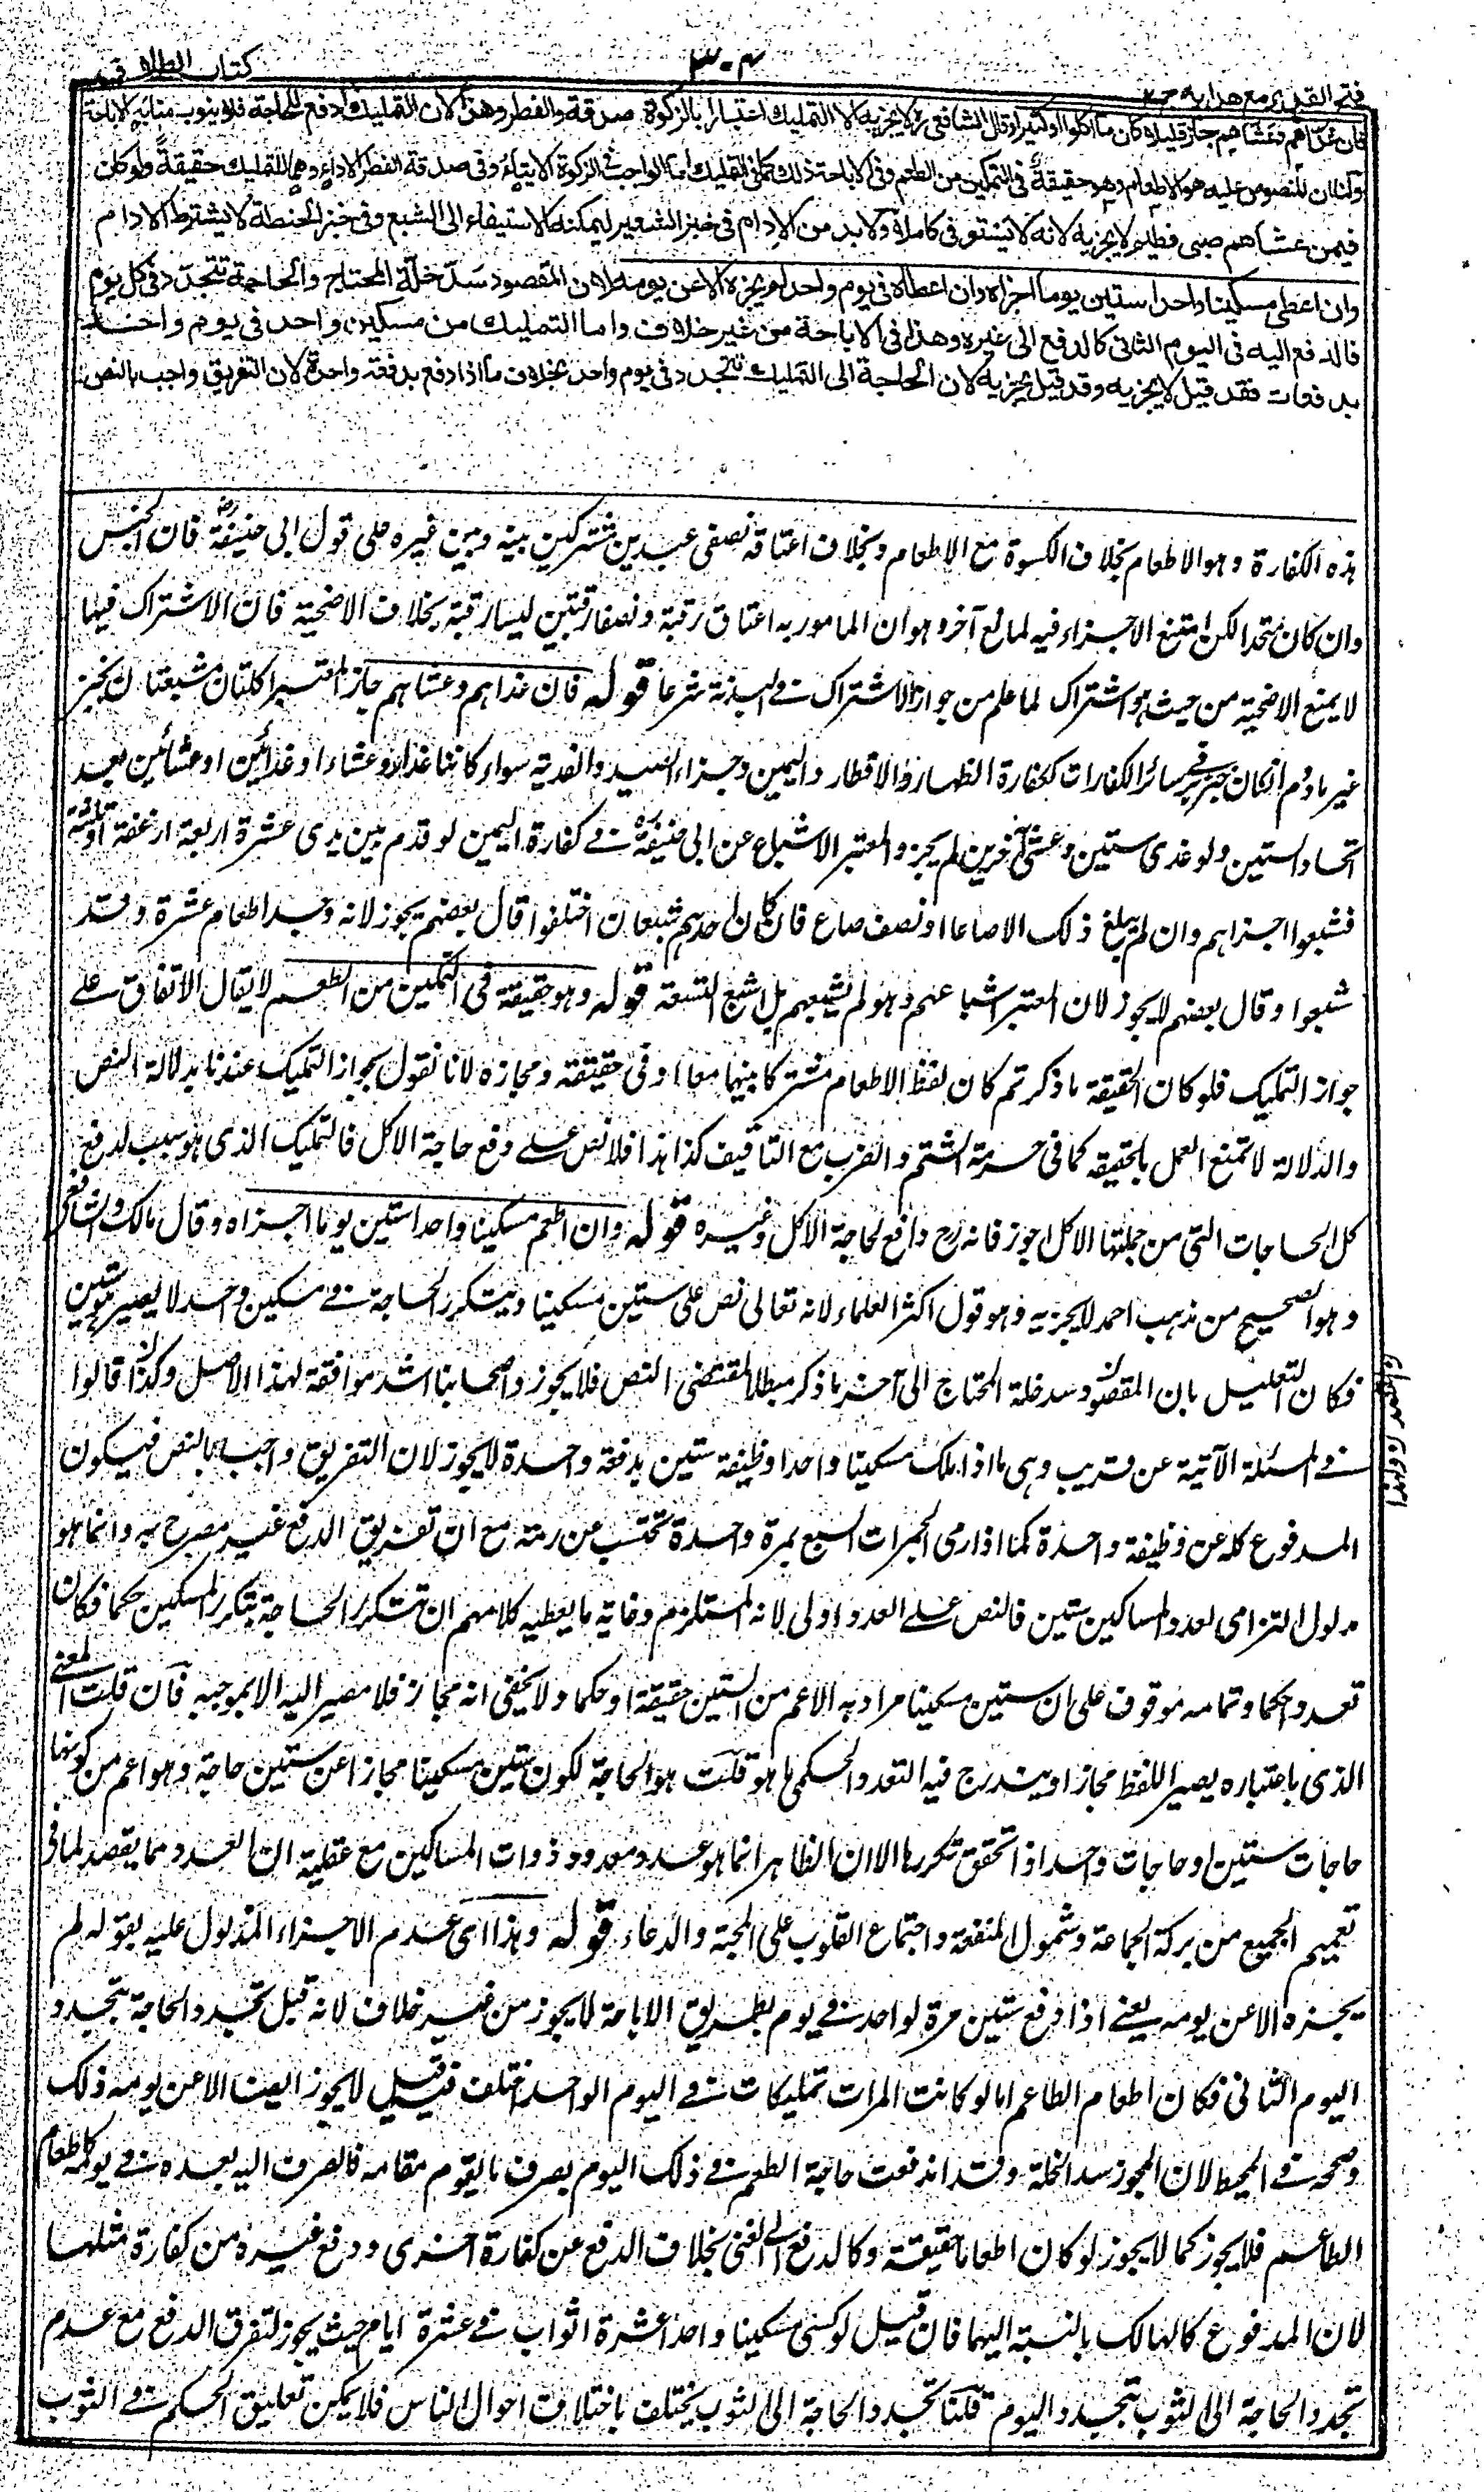 فتح القدير مع هدايه ج٢
٣٠٤
كتاب الطلاق
فان غداهم وعشاهم جاز قليلا كان ما اكلوا او كثيرا وقال الشافعي رح لا يجزيه الا التمليك اعتبارا بالزكوة وصدقة الفطر وهذا لان التمليك ادفع للحاجة فلا ينوب منابه الاباحة
ولنا ان المنصوص عليه هو الاطعام وهو حقيقة في التمكين من الطعم وفي الاباحة ذلك كما في التمليك اما الواجب في الزكوة الايتاء وفي صدقة الفطر الاداء وهما للتمليك حقيقة ولو كان
فيمن عشاهم صبي فطيم لا يجزيه لانه لا يستوفي كاملا ولا بد من الادام في خبز الشعير ليمكنه الاستيفاء الى الشبع وفي خبز الحنطة لا يشترط الادام
وان اعطى مسكينا واحدا ستين يوما اجزاه وان اعطاه في يوم واحد لم يجزه الا عن يومه لان المقصود سد خلة المحتاج والحاجة تتجدد في كل يوم
فالدفع اليه في اليوم الثاني كالدفع الى غيره وهذا في الاباحة من غير خلاف واما التمليك من مسكين واحد في يوم واحد
بدفعات فقد قيل لا يجزيه وقد قيل يجزيه لان الحاجة الى التمليك تتجدد في يوم واحد بخلاف ما اذا دفع بدفعة واحدة لان التفريق واجب بالنص
هذه الكفارة وهو الاطعام بخلاف الكسوة مع الاطعام وبخلاف اعتاقه نصفي عبدين مشتركين بينه وبين غيره على قول ابي حنيفة رح فان الجنس
وان كان متحدا لكن امتنع الاجزاء فيه لمانع آخر وهو ان المامور به اعتاق رقبة ونصفا رقبتين ليسا رقبة بخلاف الاضحية فان الاشتراك فيها
لا يمنع الاضحية من حيث هو اشتراك لما علم من جواز الاشتراك في البدنة شرعا قوله فان غداهم وعشاهم جاز المعتبر اكلتان مشبعتان بخبز
غير مادوم ان كان خبز بر في سائر الكفارات ككفارة الظهار والافطار واليمين وجزاء الصيد والفدية سواء كانتا غداء وعشاء او غدائين او عشائين بعد
اتحاد الستين ولو غدى ستين وعشى آخرين لم يجز والمعتبر الاشباع عن ابي حنيفة رح في كفارة اليمين لو قدم بين يدي عشرة اربعة ارغفة او ثلثة
فشبعوا اجزاهم وان لم يبلغ ذلك الا صاعا او نصف صاع فان كان احدهم شبعان اختلفوا قال بعضهم يجوز لانه وجد اطعام عشرة وقد
شبعوا وقال بعضهم لا يجوز لان المعتبر اشباعهم وهو لم يشبعهم بل اشبع التسعة قوله وهو حقيقة في التمكين من الطعم لا يقال الاتفاق على
جواز التمليك فلو كان الحقيقة ما ذكرتم كان لفظ الاطعام مشتركا بينهما معا او في حقيقته ومجازه لانا نقول بجواز التمليك عندنا بدلالة النص
والدلالة لا تمنع العمل بالحقيقة كما في حرمة الشتم والضرب مع التافيف كذا هذا فلا نص على دفع حاجة الاكل فالتمليك الذي هو سبب لدفع
كل الحاجات التي من جملتها الاكل اجوز فانه ح دافع لحاجة الاكل وغيره قوله وان اطعم مسكينا واحدا ستين يوما اجزاه وقال مالك والشافعي
وهو الصحيح من مذهب احمد لا يجزيه وهو قول اكثر العلماء لانه تعالى نص على ستين مسكينا وبتكرر الحاجة في مسكين واحد لا يصير هو ستين
فكان التعليل بان المقصود سد خلة المحتاج الى آخر ما ذكر مبطلا لمقتضى النص فلا يجوز واصحابنا اشد موافقة لهذا الاصل وكذا قالوا
في المسئلة الآتية عن قريب وهي ما اذا ملك مسكينا واحدا وظيفة ستين بدفعة واحدة لا يجوز لان التفريق واجب بالنص فيكون
المدفوع كله عن وظيفة واحدة كما اذا رمى الجمرات السبع بمرة واحدة تحتسب عن رمية مع ان تفريق الدفع غير مصرح به وانما هو
مدلول التزامي لعدد المساكين ستين فالنص على العدد اولى لانه المستلزم وغاية ما يعطيه كلامهم ان بتكرر الحاجة يتكرر المسكين حكما فكان
تعدد حكما وتمامه موقوف على ان ستين مسكينا مراد به الاعم من الستين حقيقة او حكما ولا يخفى انه مجاز فلا مصير اليه الا بموجبه فان قلت المعنى
الذي باعتباره يصير اللفظ مجازا ويندرج فيه التعدد الحكمي ما هو قلت هو الحاجة لكون ستين مسكينا مجازا عن ستين حاجة وهو اعم من كونها
حاجات ستين او حاجات واحد اذا تحقق تكررها الا ان الظاهر انما هو عدد معدود ذوات المساكين مع عقلية ان العدد مما يقصد لما في
تعميم الجميع من بركة الجماعة وشمول المنفعة واجتماع القلوب على المحبة والدعاء قوله وهذا اي عدم الاجزاء المدلول عليه بقوله لم
يجزه الا عن يومه يعني اذا دفع ستين مرة لواحد في يوم بطريق الاباحة لا يجوز من غير خلاف لانه قبل تجدد الحاجة بتجدد
اليوم الثاني فكان اطعام الطاعم اما لو كانت المرات تمليكات في اليوم الواحد اختلف فيه قيل لا يجوز ايضا الا عن يومه ذلك
وصححه في المحيط لان المجوز سد الخلة وقد اندفعت حاجة الطعم في ذلك اليوم بصرف ما يقوم مقامه فالصرف اليه بعده في يومه كاطعام
الطاعم فلا يجوز كما لا يجوز لو كان اطعاما حقيقة وكالدفع الى الغني بخلاف الدفع عن كفارة اخرى ودفع غيره من كفارة مثلها
لان المدفوع كالهالك بالنسبة اليهما فان قيل لو كسى مسكينا واحدا عشرة اثواب في عشرة ايام حيث يجوز لتفرق الدفع مع عدم
تجدد الحاجة الى الثوب بتجدد اليوم قلنا تجدد الحاجة الى الثوب يختلف باختلاف احوال الناس فلا يمكن تعليق الحكم في الثوب